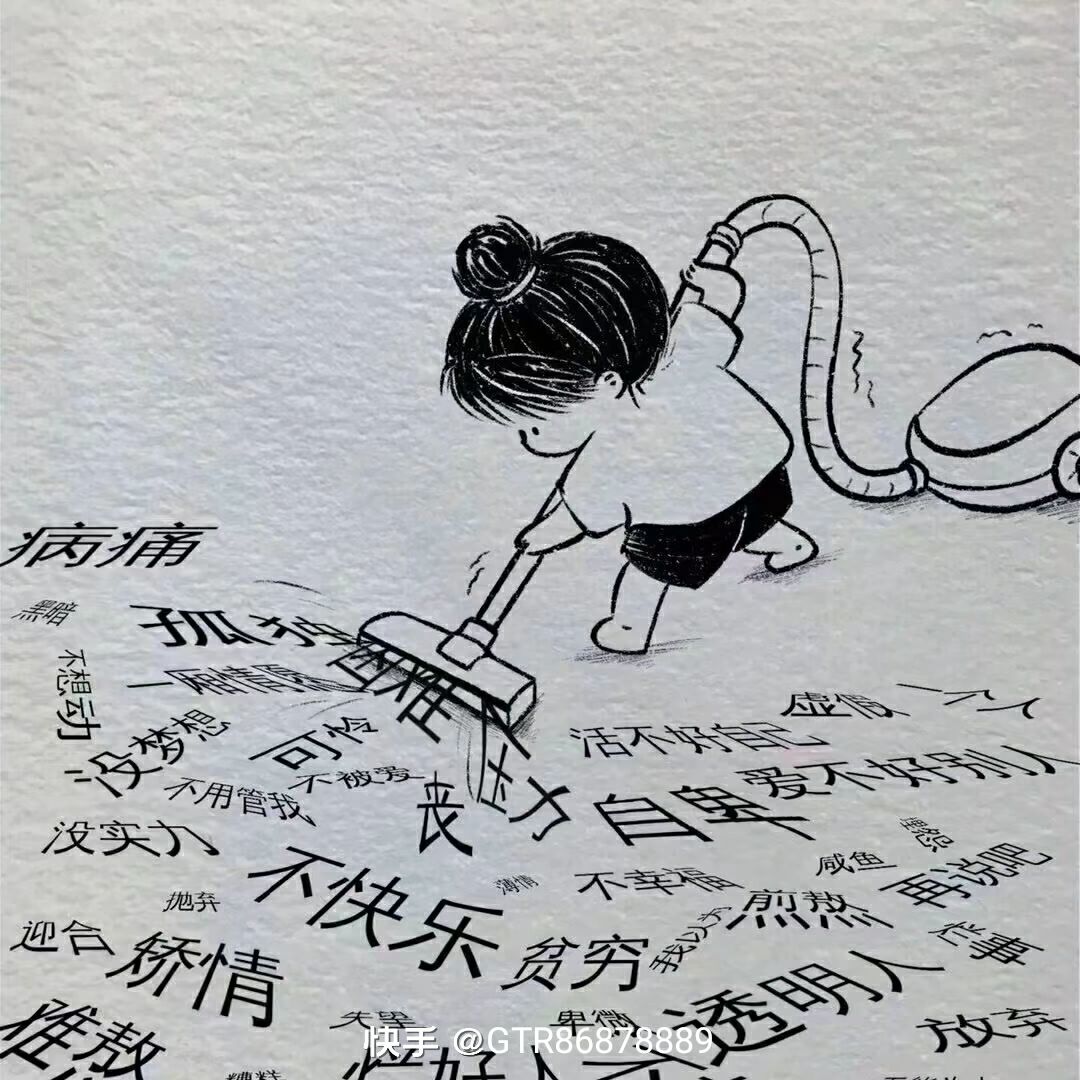 病痛
黑暗
孤独
困难
不想动
一厢情愿
没梦想
可怜
不被爱
不用管我
没实力
丧
努力
活不好自己
虚假
一个人
自卑
爱不好别人
埋怨
不快乐
薄情
不幸福
咸鱼
再说吧
抛弃
煎熬
我以为
迎合
矫情
贫穷
难熬
卑微
透明人
放弃
烂好人
糟糕
快手 @GTR86878889